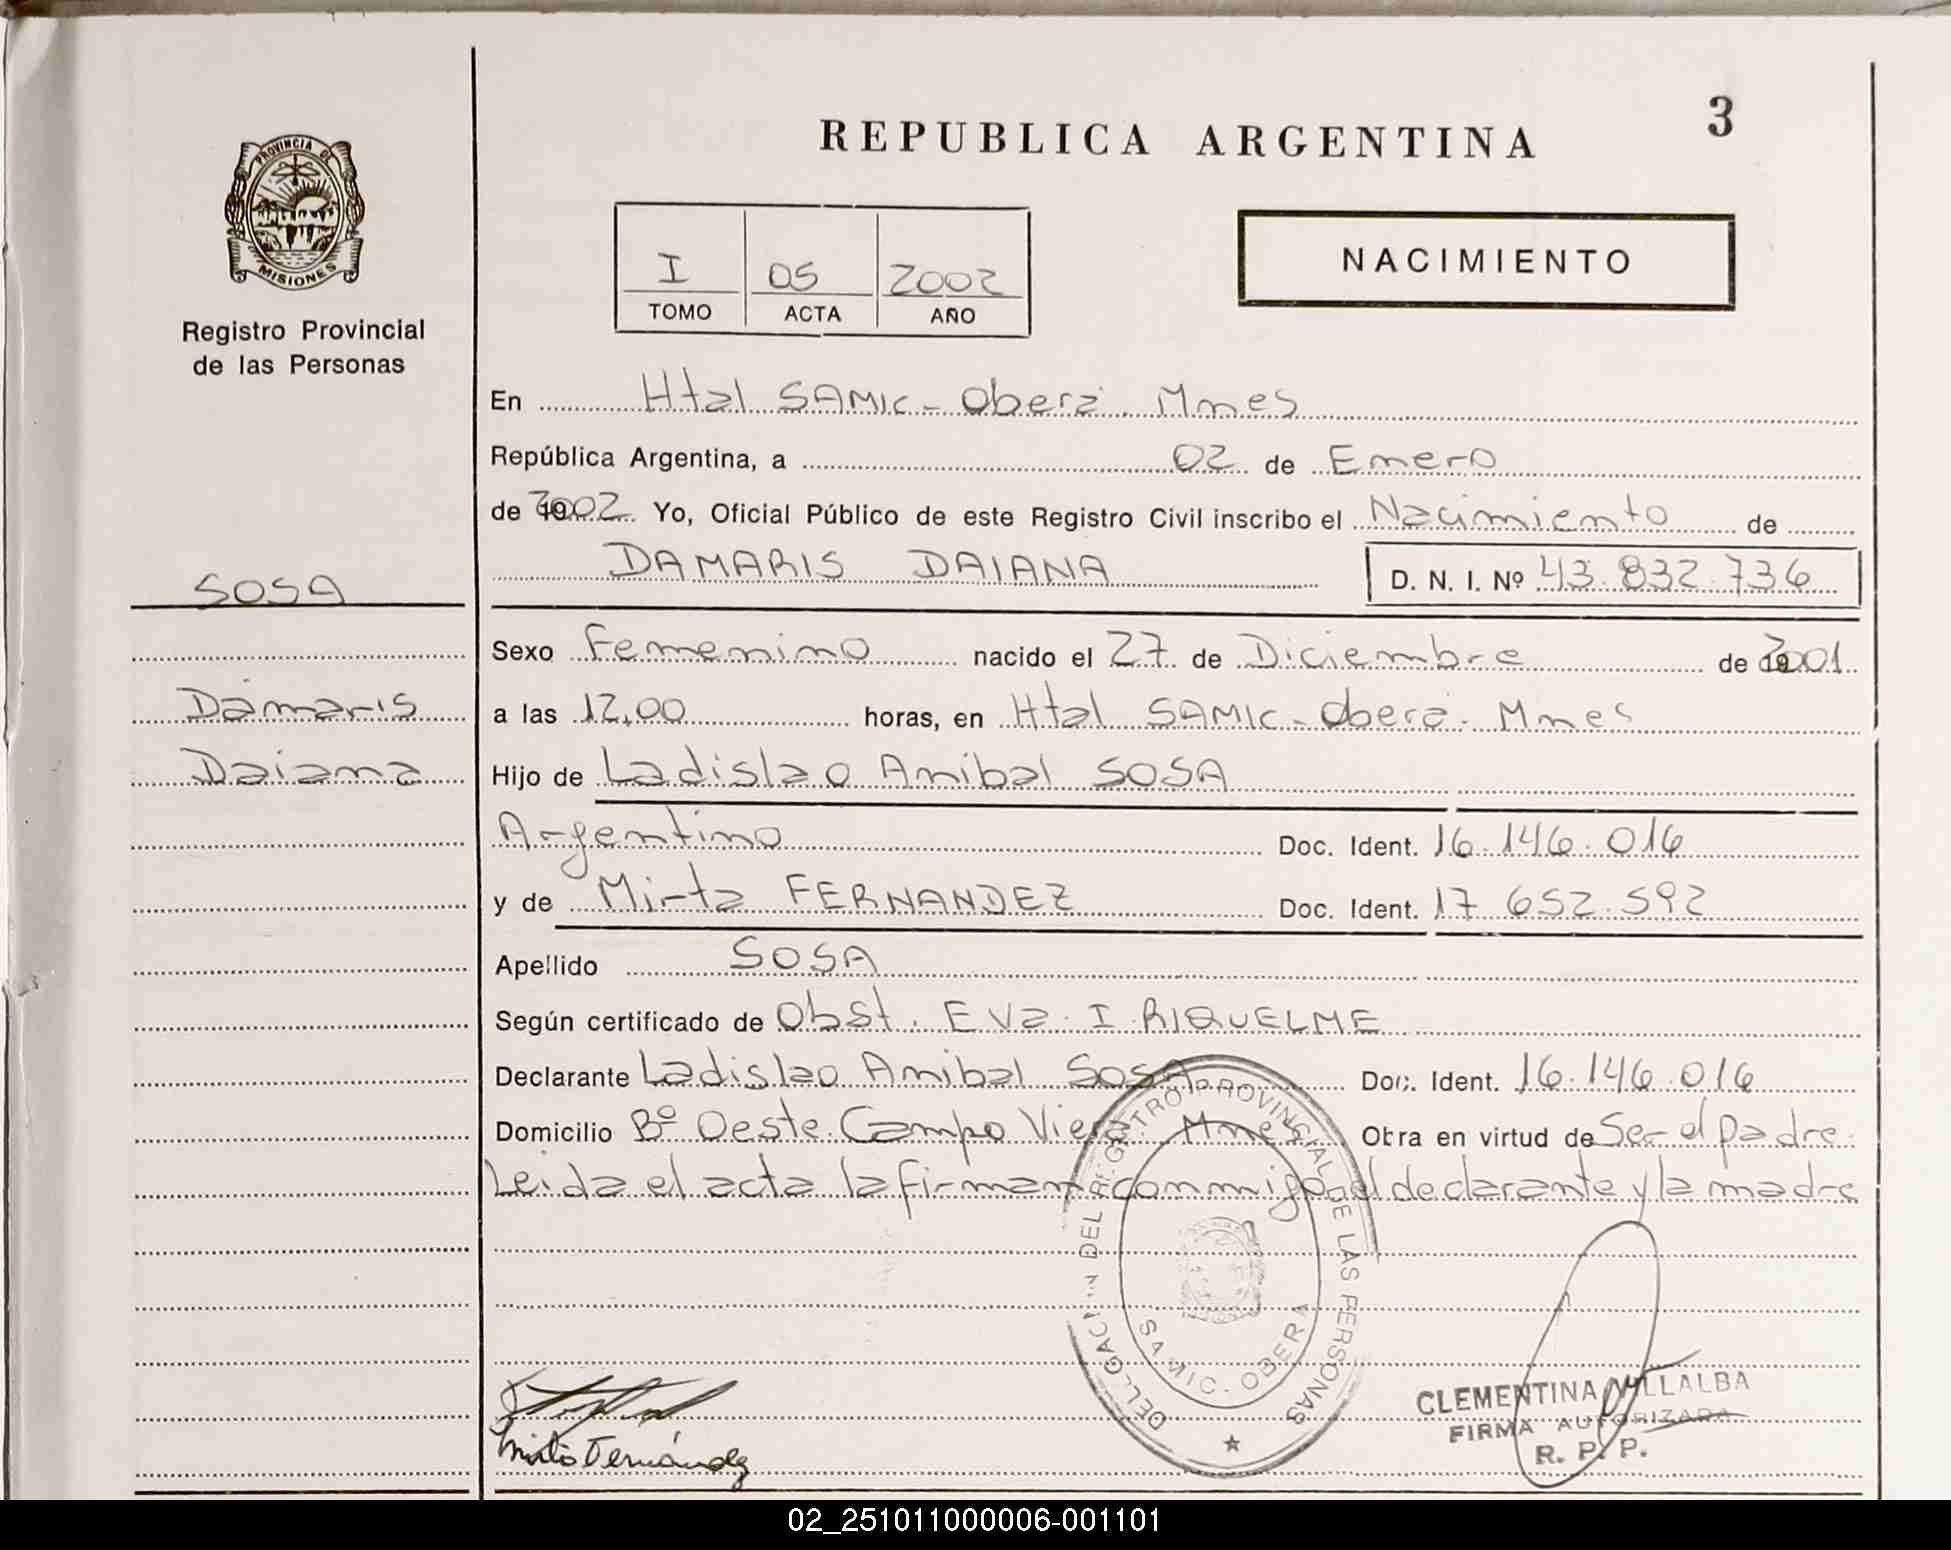 3
REPUBLICA ARGENTINA
PROVINCIA DE
MISIONES
Registro Provincial
de las Personas
I 05 2002
TOMO ACTA AÑO
NACIMIENTO
En Htal SAMIC - Oberá. Mnes
República Argentina, a 02 de Enero
de 2002 Yo, Oficial Público de este Registro Civil inscribo el Nacimiento de
DAMARIS DAIANA D. N. I. Nº 43.832.736
SOSA
Damaris
Daiana
Sexo Femenino nacido el 27 de Diciembre de 2001
a las 12,00 horas, en Htal SAMIC - Oberá. Mnes
Hijo de Ladislao Anibal SOSA
Argentino Doc. Ident. 16.146.016
y de Mirta FERNANDEZ Doc. Ident. 17 652.592
Apellido SOSA
Según certificado de Obst. Eva I RIQUELME
Declarante Ladislao Anibal SOSA Doc. Ident. 16.146.016
Domicilio Bº Oeste Campo Viera Mnes Obra en virtud de Ser el padre.
Leida el acta la firman conmigo el declarante y la madre
DEL REGISTRO PROVINCIAL DE LAS PERSONAS
OBERA
Mirta Fernández
CLEMENTINA VILLALBA
FIRMA AUTORIZADA
R. P. P.
02_251011000006-001101